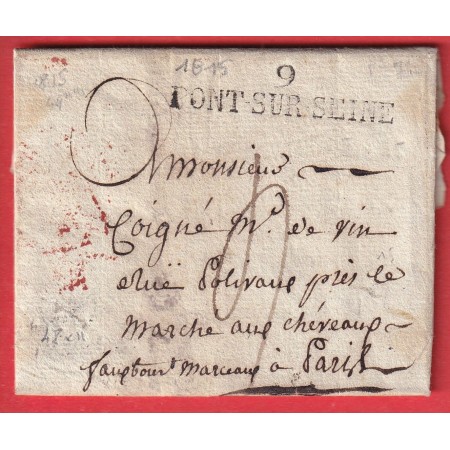 1815
1815
9
PONT-SUR-SEINE
A monsieur
Coigné Md. de vin
Ruë Polivaux près le
marche aux chëveaux
fauxbourt marceaux à Paris